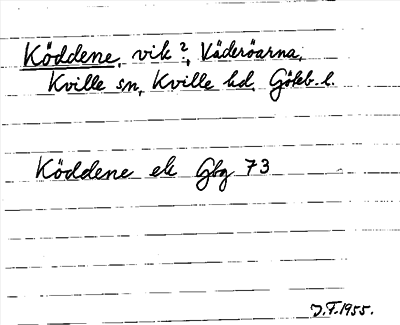 Köddene, vik ?, Väderöarna,
Kville sn, Kville hd, Göteb. l.
Köddene ek Gbg 73
J.F. 1955.